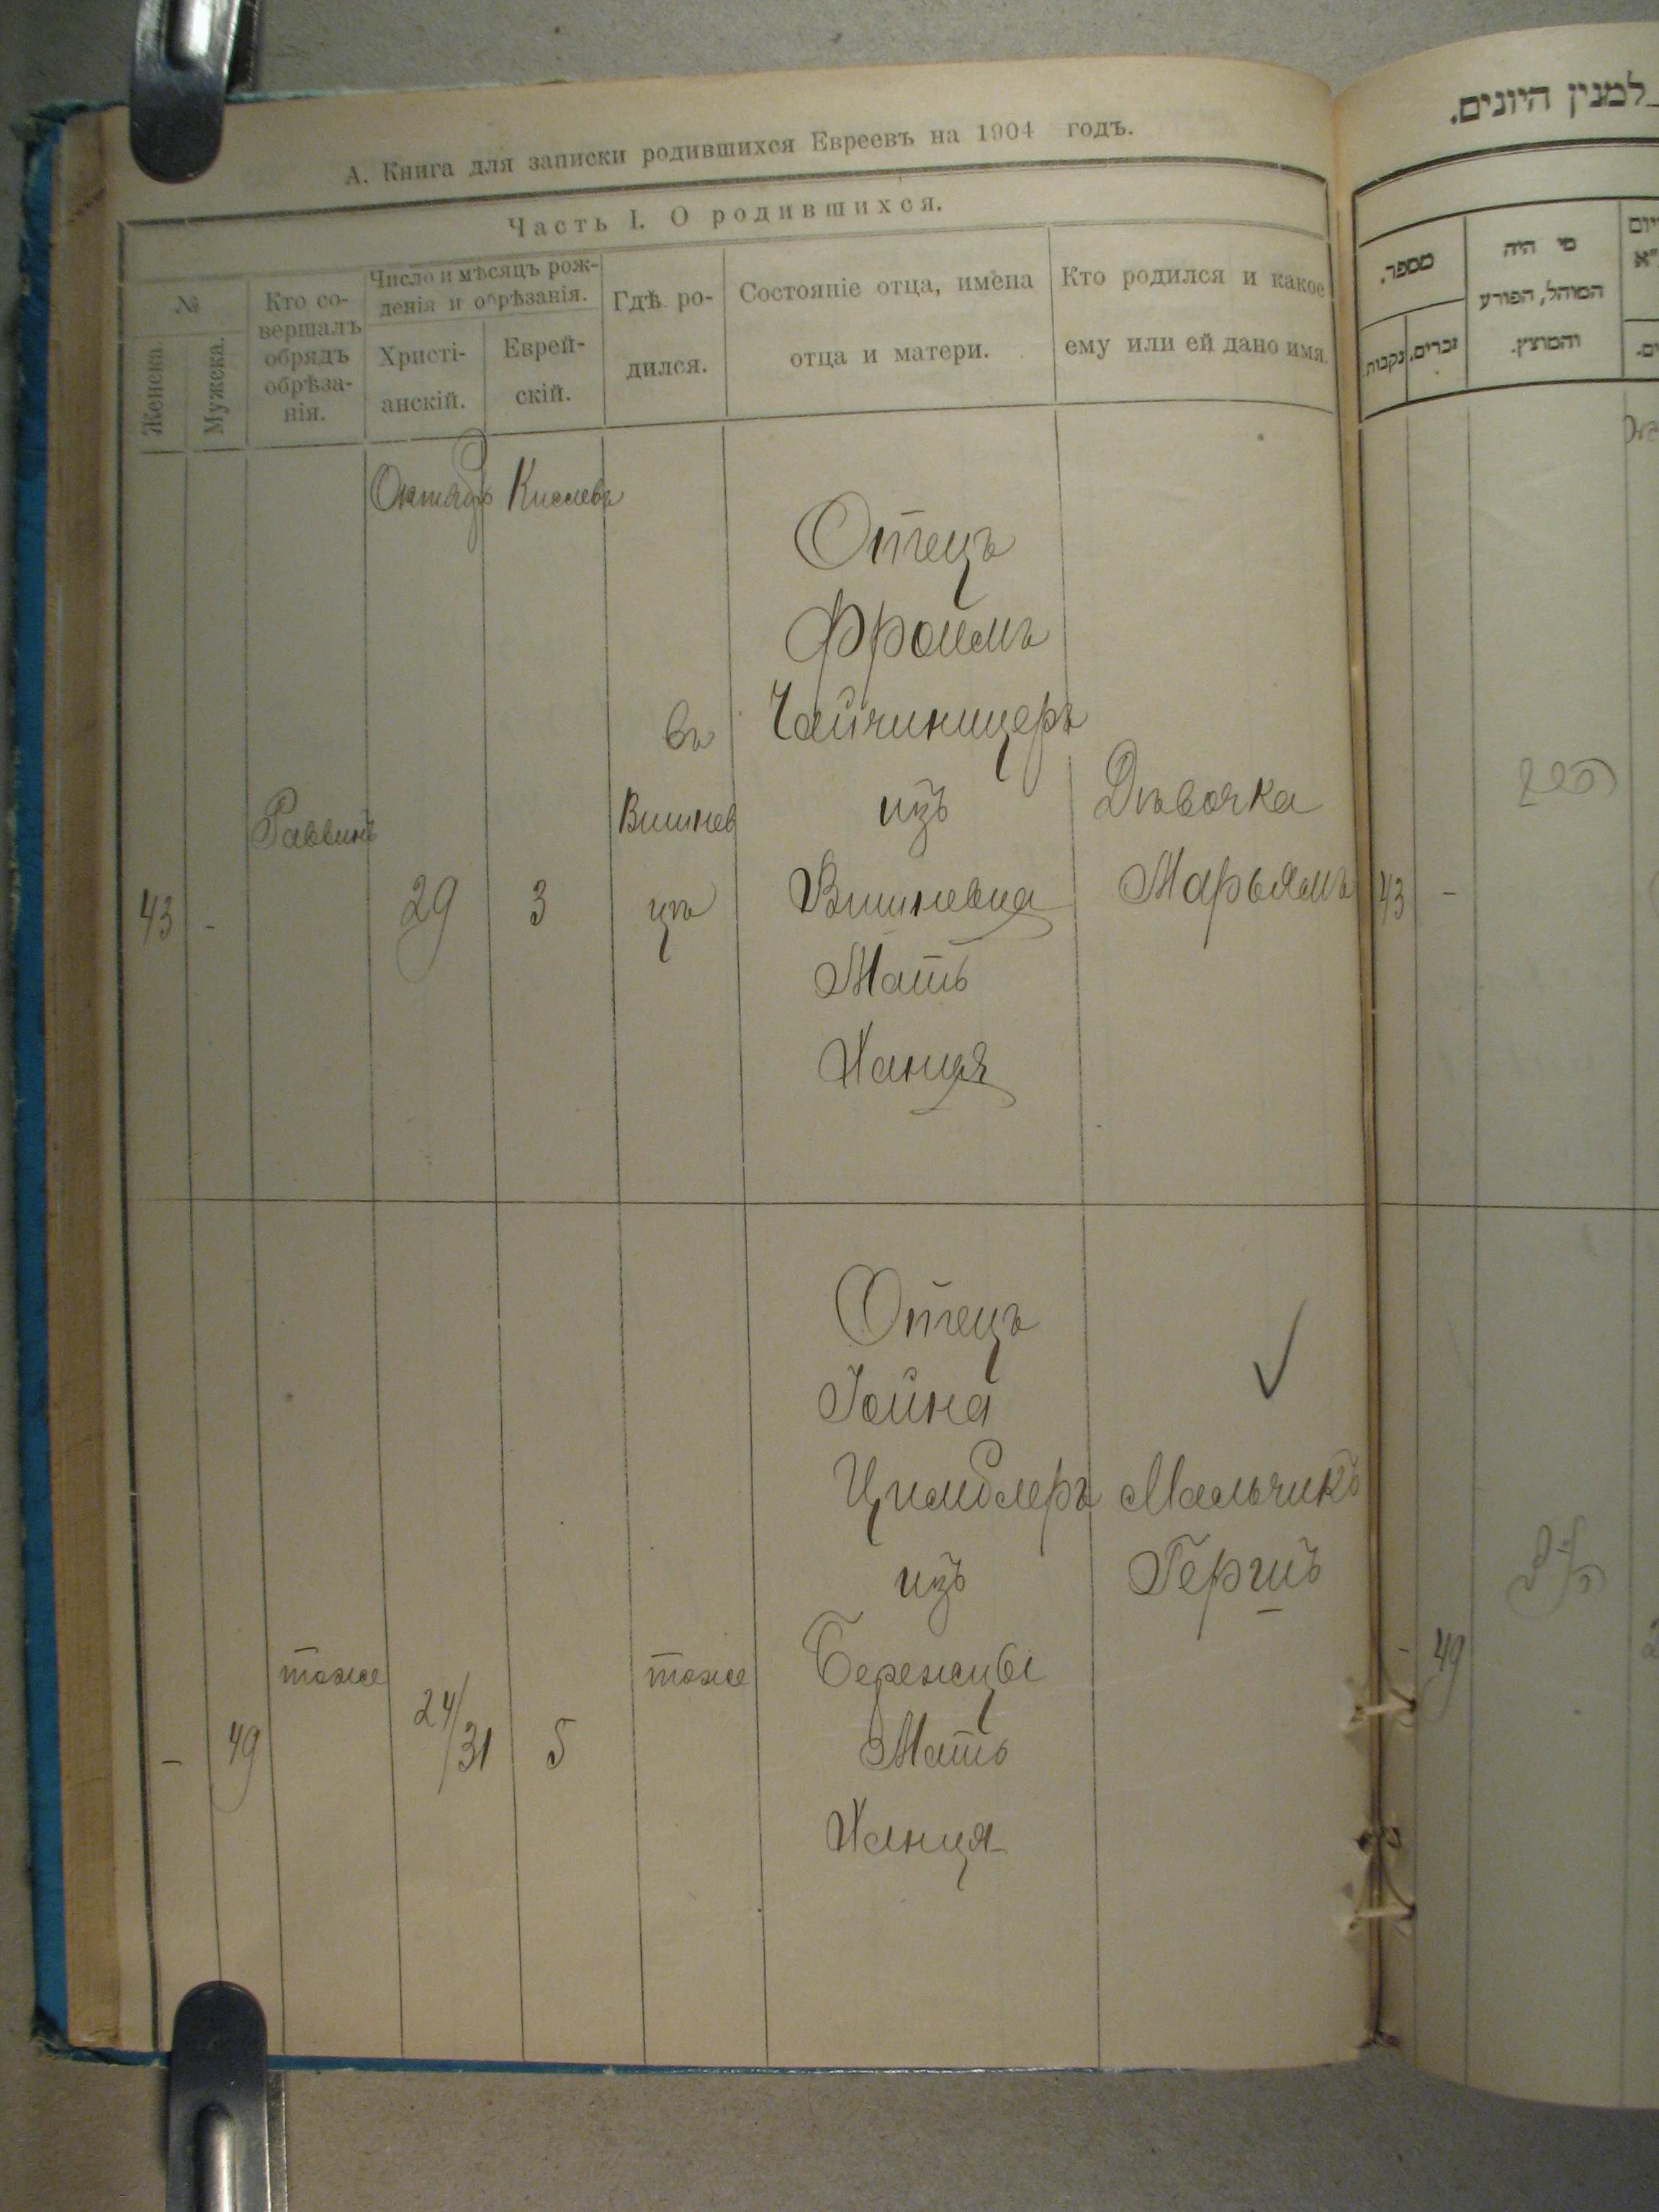 А. Книга для записки родившихся Евреевъ на 1904 годъ.
Часть I. О родившихся.
№
Женска.
Мужска.
Кто со-
вершалъ
обрядъ
обрѣза-
нія.
Число и мѣсяцъ рож-
денія и обрѣзанія.
Христі-
анскій.
Еврей-
скій.
Гдѣ ро-
дился.
Состояніе отца, имена
отца и матери.
Кто родился и какое
ему или ей дано имя.
Октябрь Кислевъ
43 -
Раввинъ
29 3
въ
Вишнев
цѣ
Отецъ
Фроимъ
Чайчиницеръ
изъ
Вишневца
Мать
Ханця
Дѣвочка
Марьямъ
- 49
тоже
24/31 5
тоже
Отецъ
Іойна
Цимблеръ
изъ
Бережцы
Мать
Ханця
Мальчикъ
Гершъ
למנין היונים.
מספר.
זכרים.
נקבות.
מי היה
המוהל, הפורע
והמוצץ.
43 -
- 49